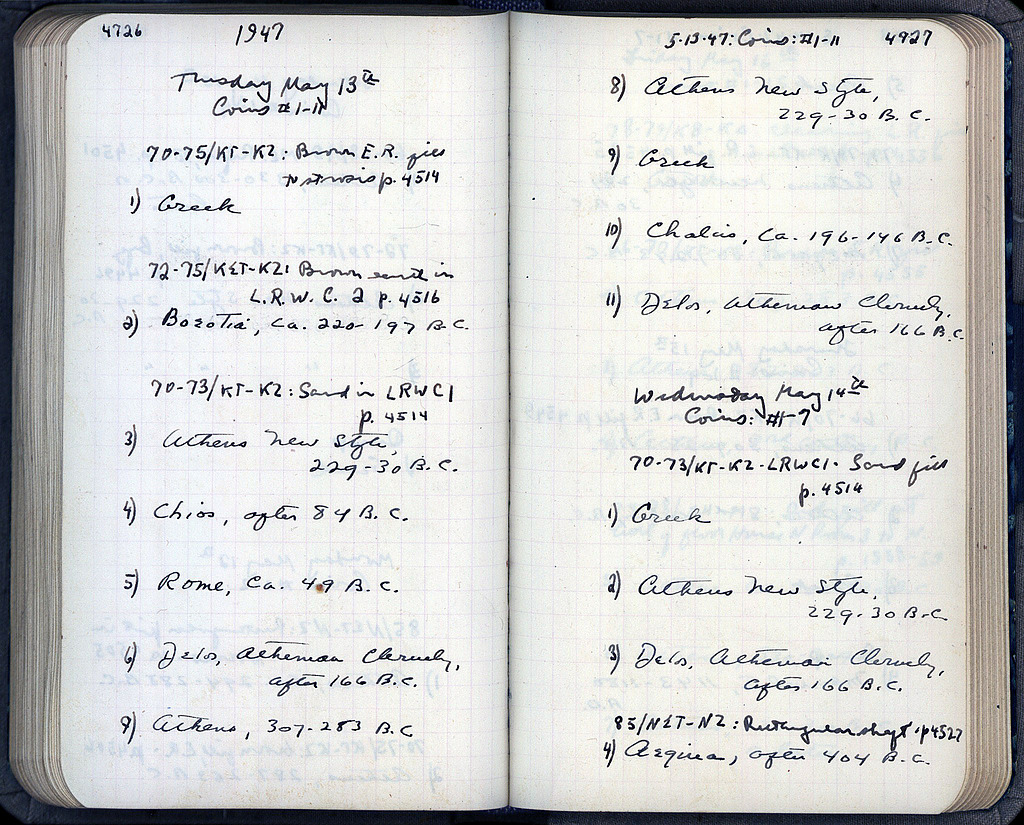 4726
1947
Tuesday May 13th
Coins #1-11
70-75/KΓ-KZ: Brown E.R. fill
to stosis p. 4514
1) Greek
72-75/KΣT-KZ: Brown earth in
L.R.W.C. 2 p. 4516
2) Boeotia, ca. 220-197 B.C.
70-73/KΓ-KZ: Sand in LRWC1
p. 4514
3) Athens New Style,
229-30 B.C.
4) Chios, after 84 B.C.
5) Rome, ca. 49 B.C.
6) Delos, Athenian Cleruchy,
after 166 B.C.
7) Athens, 307-283 B.C
5-13-47: Coins: #1-11
4727
8) Athens New Style,
229-30 B.C.
9) Greek
10) Chalcis, ca. 196-146 B.C.
11) Delos, Athenian Cleruchy,
after 166 B.C.
Wednesday May 14th
Coins: #1-7
70-73/KΓ-KZ-LRWC1- Sand fill
p. 4514
1) Greek
2) Athens New Style,
229-30 B.C
3) Delos, Athenian Cleruchy,
after 166 B.C.
85/NΣT-NZ: Rectangular shaft p4527
4) Aegina, after 404 B.C.